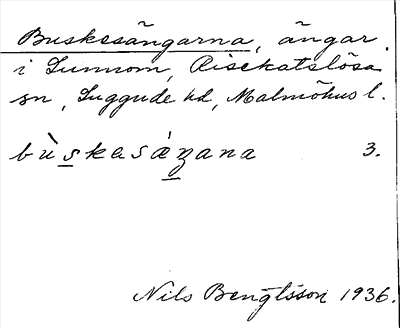 Buskesängarna, ängar
i Lunnom, Risekatslösa
sn, Luggude hd, Malmöhus l.
bùskasáŋana 3.
Nils Bengtsson 1936.